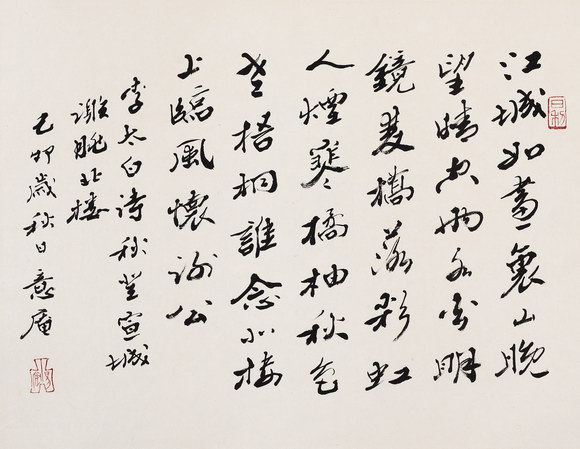 江城如畫裏山晚
望晴空兩水夾明
鏡雙橋落彩虹
人煙寒橘柚秋色
老梧桐誰念北樓
上臨風懷謝公
李太白诗秋登宣城
謝眺北楼
己卯歲秋日意庵